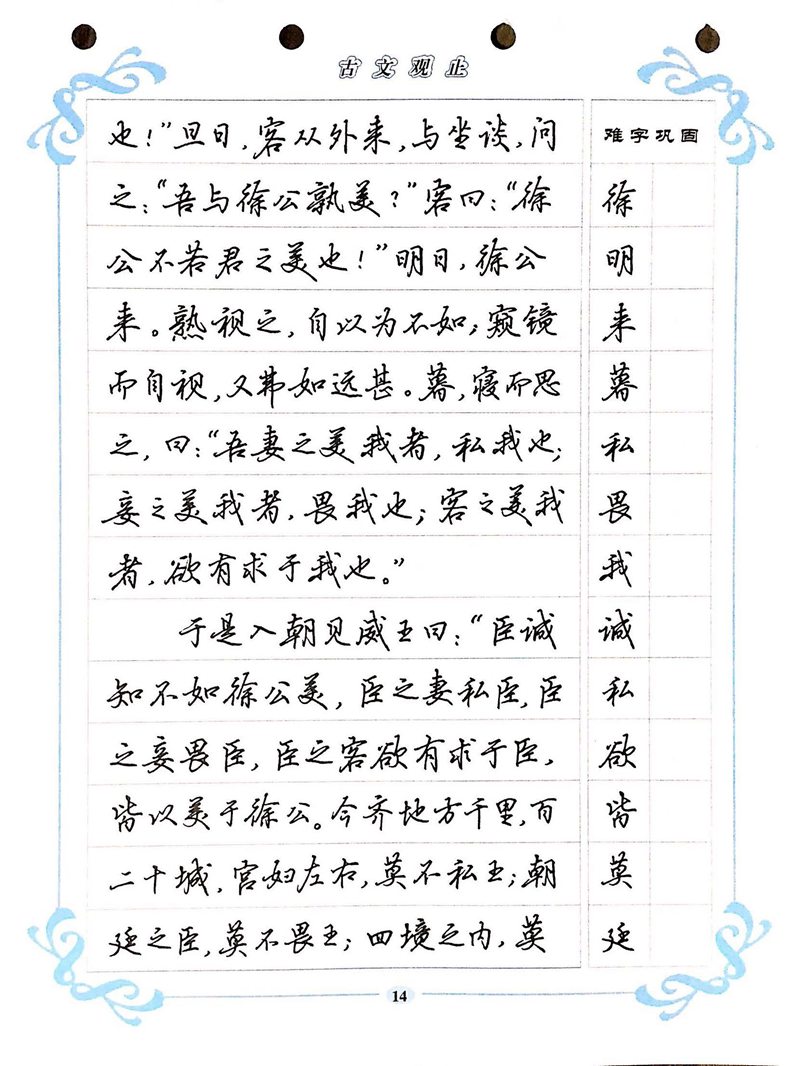 古文观止
也！”旦日，客从外来，与坐谈，问
之：“吾与徐公孰美？”客曰：“徐
公不若君之美也！”明日，徐公
来。熟视之，自以为不如；窥镜
而自视，又弗如远甚。暮，寝而思
之，曰：“吾妻之美我者，私我也；
妾之美我者，畏我也；客之美我
者，欲有求于我也。”
于是入朝见威王曰：“臣诚
知不如徐公美，臣之妻私臣，臣
之妾畏臣，臣之客欲有求于臣，
皆以美于徐公。今齐地方千里，百
二十城，宫妇左右，莫不私王；朝
廷之臣，莫不畏王；四境之内，莫
难字巩固
徐
明
来
暮
私
畏
我
诚
私
欲
皆
莫
廷
14